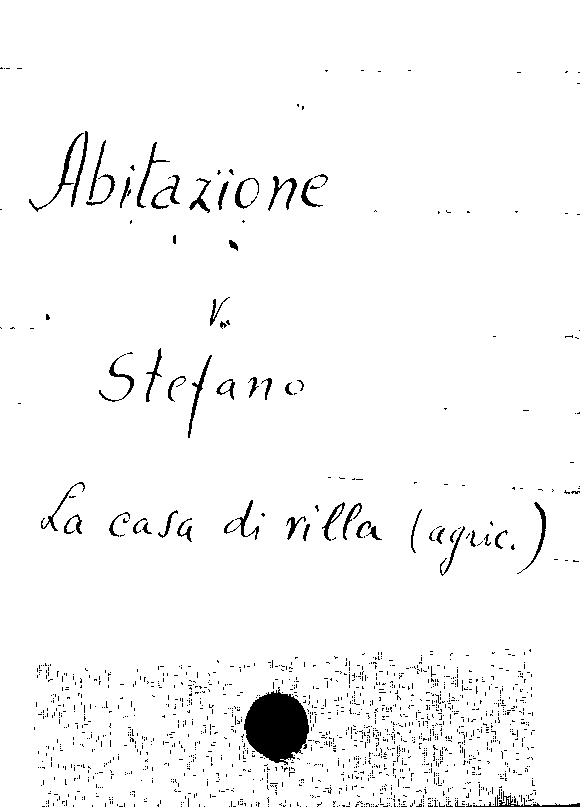 Abitazione
V.
Stefano
La casa di villa (agric.)